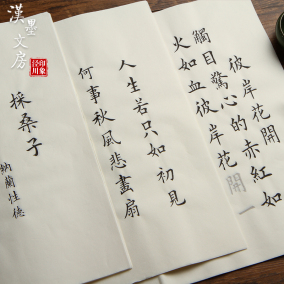 漢墨文房
印象
泾川
彼岸花開
觸目驚心的赤紅如
火如血彼岸花開一
人生若只如初見
何事秋風悲畫扇
採桑子
納蘭性德